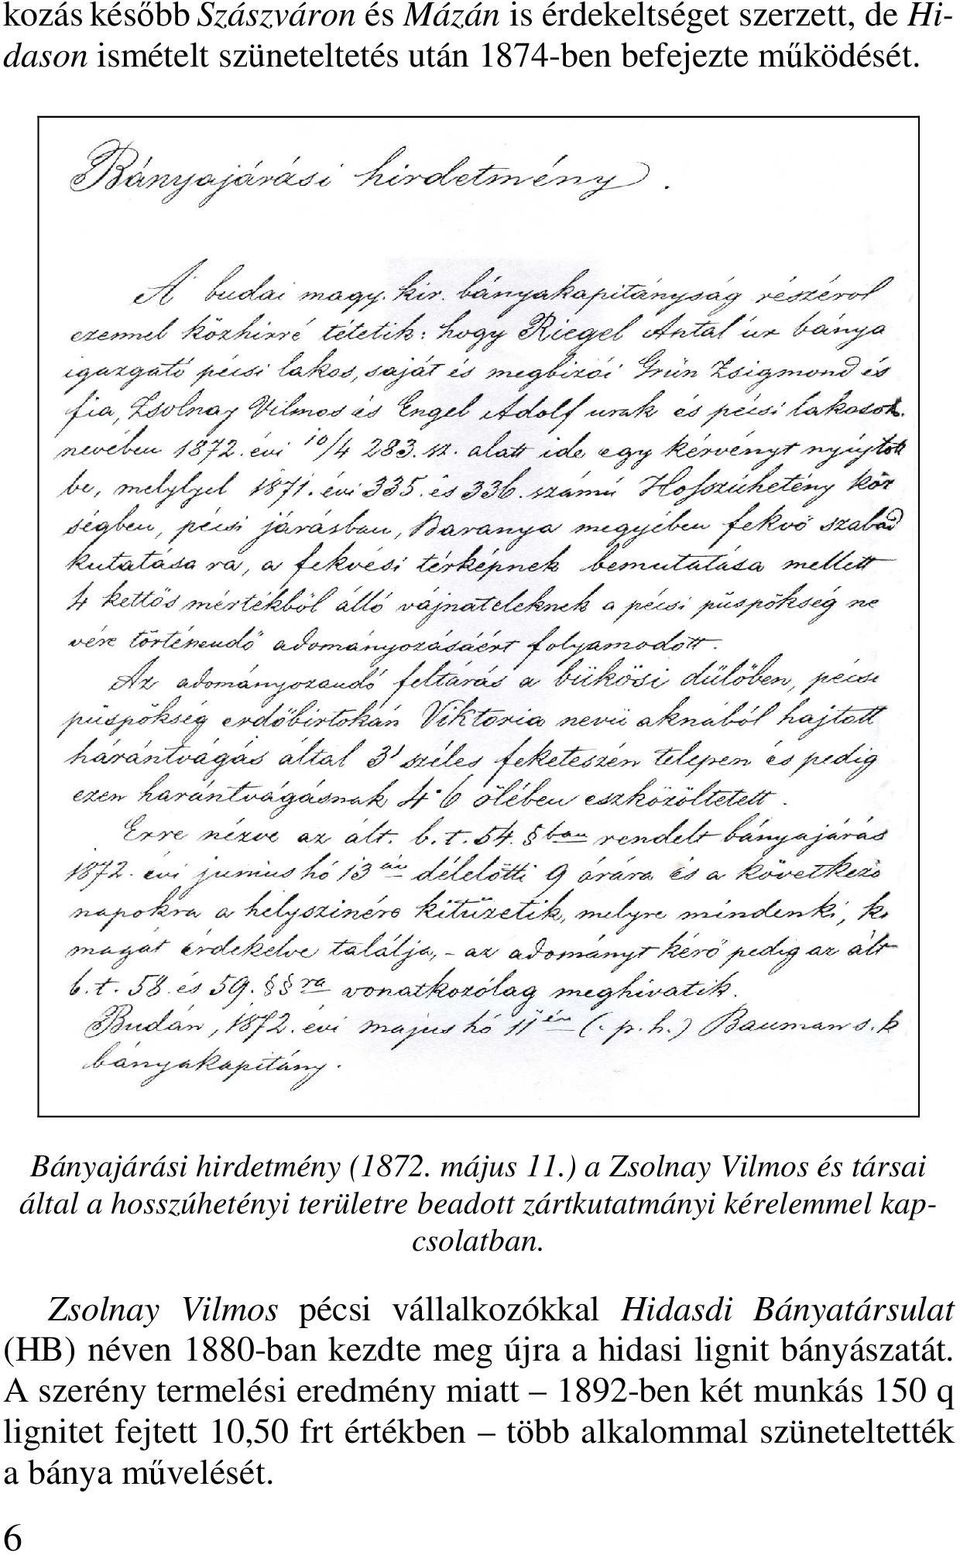 kozás később Szászváron és Mázán is érdekeltséget szerzett, de Hi-
dason ismételt szüneteltetés után 1874-ben befejezte működését.
Bányajárási hirdetmény.
A budai magy. kir. bányakapitányság részéről
ezennel közhírré tétetik: hogy Riegel Antal úr bánya
igazgató pécsi lakos, saját és megbizói Grün Zsigmond és
fia, Zsolnay Vilmos és Engel Adolf urak és pécsi lakosok
nevében 1872. évi 10/4 283. sz. alatt ide egy kérvényt nyújtott
be, melylyel 1871. évi 335. és 336. számú Hosszúhetény köz
ségben, pécsi járásban, Baranya megyében fekvő szabad
kutatására, a fekvési térképnek bemutatása mellett
4 kettős mértékből álló vájnateleknek a pécsi püspökség ne
vére történendő adományozásáért folyamodott.
Az adományozandó feltárás a bükösi dülőben, pécsi
püspökség erdőbirtokán Viktoria nevü aknából hajtott
harántvágás által 3' széles feketeszén telepen és pedig
ezen harántvágásnak 4°6 ölében eszközöltetett.
Erre nézve az ált. b. t. 54. §ban rendelt bányajárás
1872. évi junius hó 13 án délelőtti 9 órára és a következő
napokra a helyszinére kitüzetik, melyre mindenki, ki
magát érdekelve találja, - az adományt kérő pedig az ált
b. t. 58. és 59. §§ ra vonatkozólag meghivatik.
Budán, 1872. évi május hó 11 én (. p. h.) Bauman s. k
bányakapitány.
Bányajárási hirdetmény (1872. május 11.) a Zsolnay Vilmos és társai
által a hosszúhetényi területre beadott zártkutatmányi kérelemmel kap-
csolatban.
Zsolnay Vilmos pécsi vállalkozókkal Hidasdi Bányatársulat
(HB) néven 1880-ban kezdte meg újra a hidasi lignit bányászatát.
A szerény termelési eredmény miatt – 1892-ben két munkás 150 q
lignitet fejtett 10,50 frt értékben – több alkalommal szüneteltették
a bánya művelését.
6